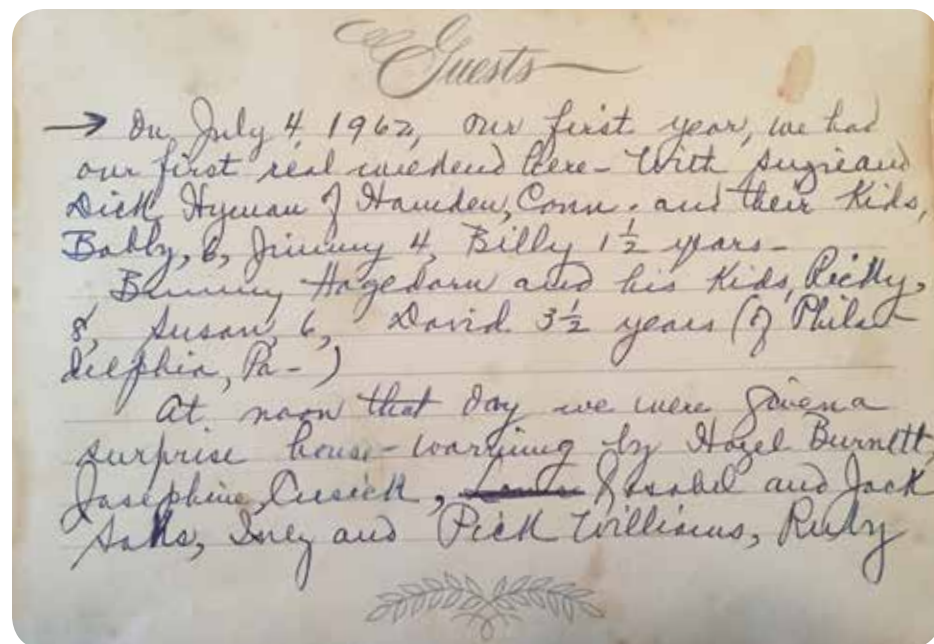 Guests
→ On July 4, 1962, our first year, we had
our first real weekend here - With Suzie and
Dick Hyman of Hamden, Conn. and their Kids,
Bobby, 6, Jimmy 4, Billy 1½ years -
Bunny Hagedorn and his Kids, Ricky,
8, Susan, 6, David 3½ years (of Phila-
delphia, Pa - )
At noon that day we were given a
surprise house-warming by Hazel Burnett,
Josephine Cusick, & Isabel and Jack
Saks, Inez and Dick Williams, Rudy